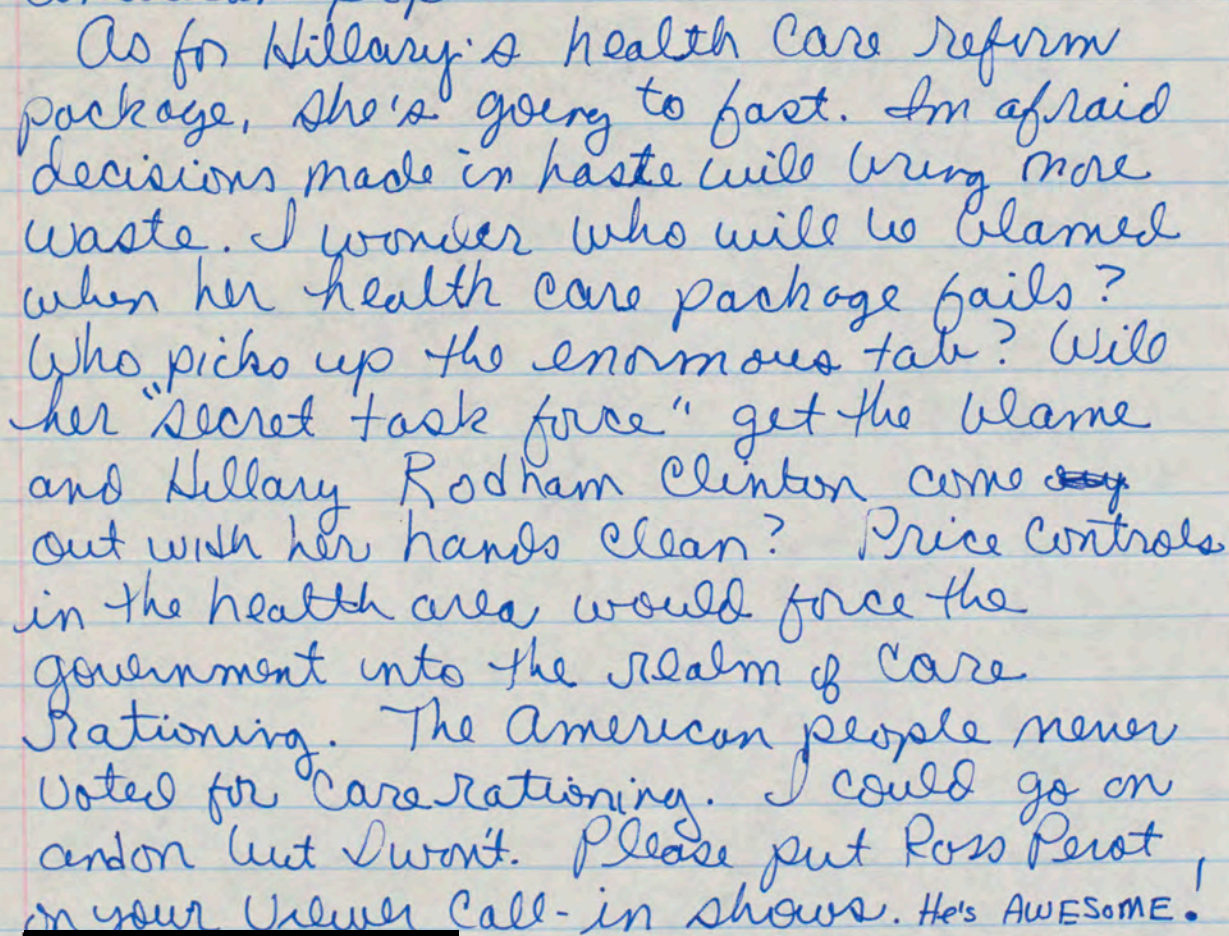 As for Hillary's health Care reform
package, she's going to fast. Im afraid
decisions made in haste will bring more
waste. I wonder who will be blamed
when her health care package fails?
Who picks up the enormous tab? Will
her "secret task force" get the blame
and Hillary Rodham Clinton come
out with her hands clean? Price Controls
in the health area would force the
government into the realm of Care
Rationing. The American people never
voted for Care rationing. I could go on
and on but I won't. Please put Ross Perot
on your Viewer Call-in shows. He's AWESOME!